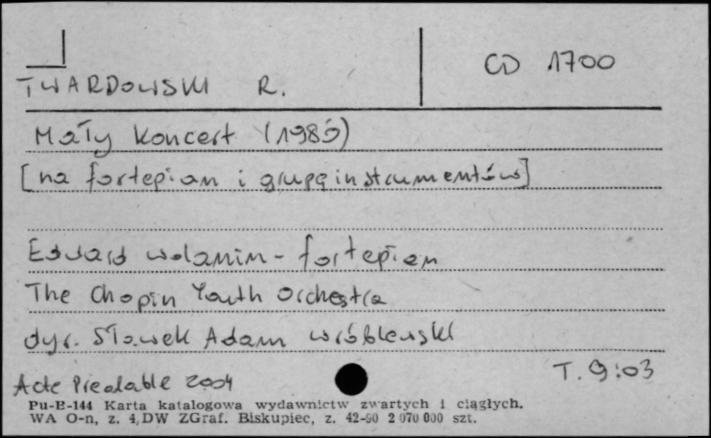 CD 1700
TWARDOWSKI R.
Mały koncert (1980)
[na fortepian i grupę instrumentów]
Edward Wolanin - fortepian
The Chopin Youth Orchestra
dyr. Sławek Adam Wróblewski
T. 9:03
Acte Préalable 2004
Pu-E-144 Karta katalogowa wydawnictw zwartych i ciągłych.
WA O-n, z. 4, DW ZGraf. Biskupiec, z. 42-90 2 070 000 szt.